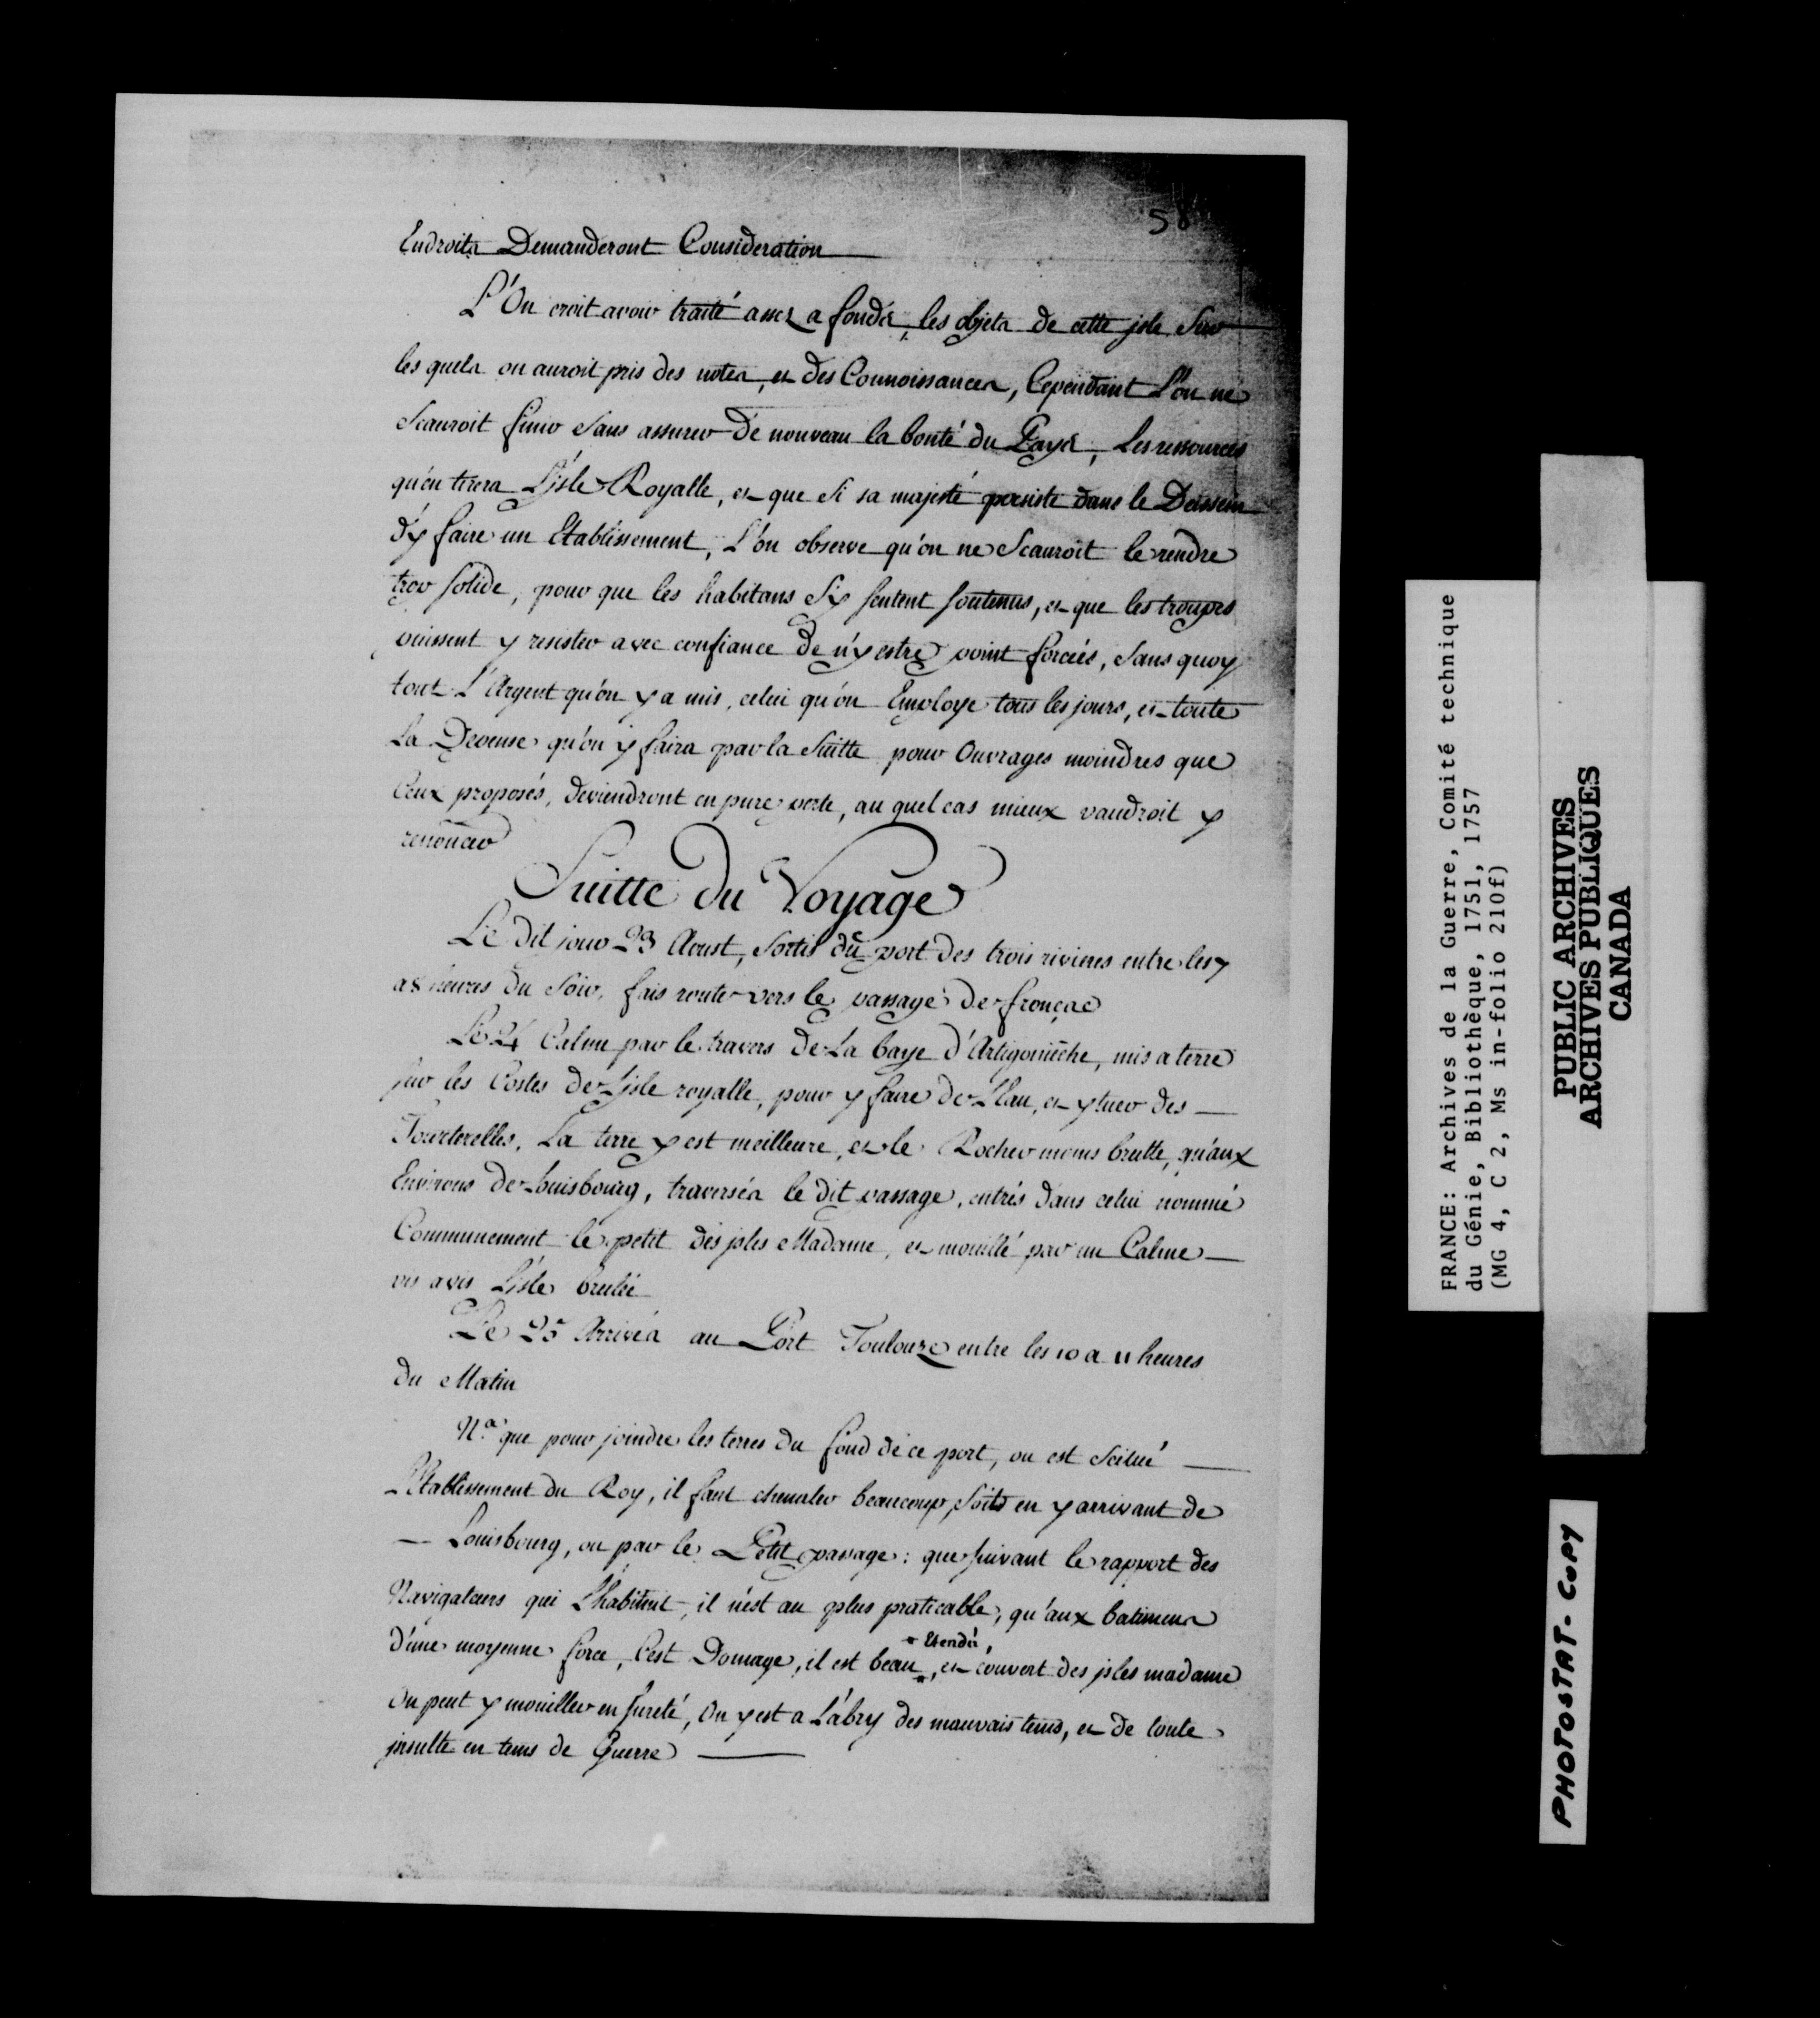 58
Endroits Demanderont Consideration
L'On croit avoir traité assez a fonds, les objets de cette jsle Sur
les quels on auroit pris des notes, et des Connoissances, Cependant L'on ne
Scauroit finir Sans assurer de nouveau la bonté du Pays, Les ressources
qu'en tirera L'jsle Royalle, et que Si sa majesté persiste dans le Dessein
d'y faire un Etablissement, L'on observe qu'on ne Scauroit le rendre
trop solide, pour que les habitans S'y sentent soutenus, et que les troupes
puissent y resister avec confiance de n'y estre point forcées, Sans quoy
tout L'Argent qu'on y a mis, celui qu'on Employe tous les jours, et toute
La Depense qu'on y faira par la Suitte pour Ouvrages moindres que
Ceux proposés, deviendront en pure perte, au quel cas mieux vaudroit y
renoncer
Suitte du Voyage
Le dit jour 23 Aoust, Sortis du port des trois rivieres entre les 7
a 8 heures du Soir, fais route vers le passage de fronçac
Le 24 Calme par le travers de La baye d'Artigoniêche, mis a terre
sur les Costes de L'jsle royalle, pour y faire de L'Eau, et y tuer des
Tourterelles, La terre y est meilleure, et le Rocher moins brutte, qu'aux
Environs de Louisbourg, traversés le dit passage, entrés dans celui nommé
Communement le petit des jsles Madame, et mouillé par un Calme
vis avis L'jsle brulée
Le 25 Arrivés au Port Toulouze entre les 10 a 11 heures
du Matin
N.a que pour joindre les terres du fond de ce port, ou est Scitué
L'Etablissement du Roy, il faut chenaler beaucoup, Soit en y arrivant de
Louisbourg, ou par le Petit passage: que suivant le rapport des
Navigateurs qui L'habitent, il n'est au plus praticable, qu'aux batimens
d'une moyenne force, C'est Domage, il est beau *, et couvert des jsles madame
* Etendu,
On peut y mouiller en sureté, On y est a L'abry des mauvais tems, et de toute
jnsulte en tems de Guerre
FRANCE: Archives de la Guerre, Comité technique
du Génie, Bibliothèque, 1751, 1757
(MG 4, C 2, Ms in-folio 210f)
PUBLIC ARCHIVES
ARCHIVES PUBLIQUES
CANADA
PHOTOSTAT-COPY